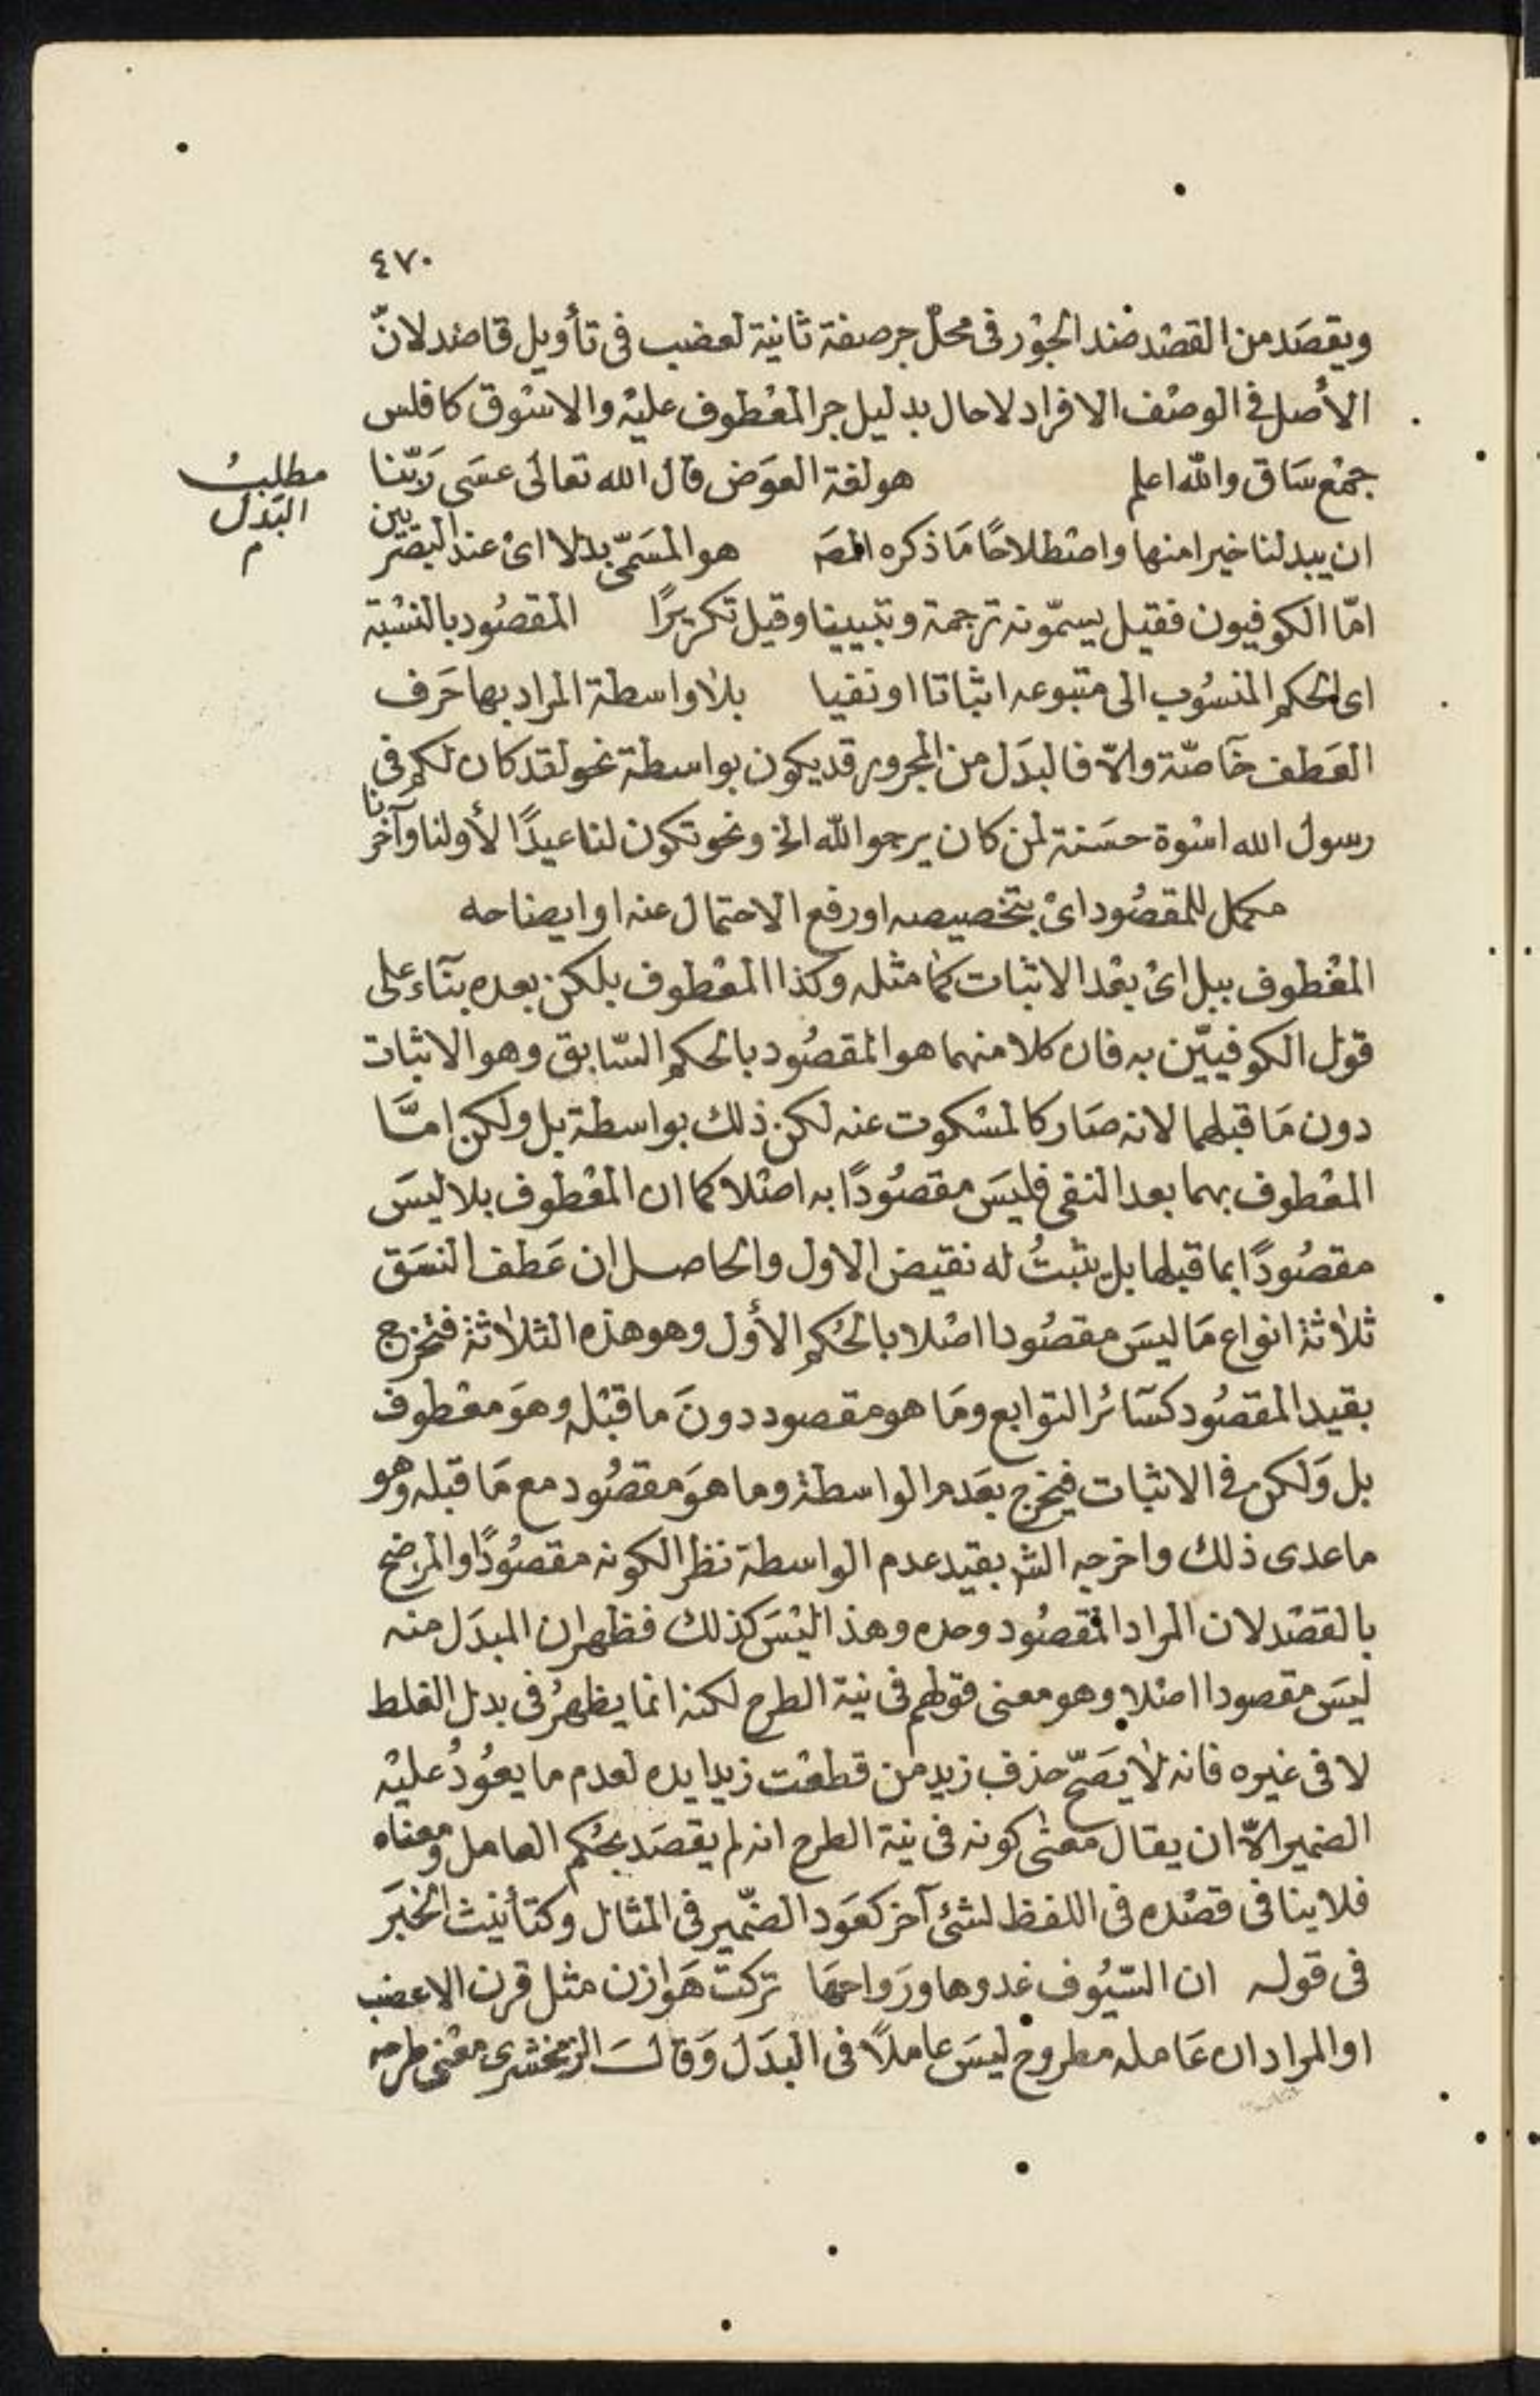 ٤٧٠
ويقصَد من القصْد ضد الجوْر في محلّ جر صفة ثانية لعضب في تأويل قاصد لانّ
الأصل في الوصْف الافراد لا حال بدليل جر المعْطوف عليْه والاسْوق كافلس
جمْع سَاق والله اعلم هو لغة العوَض قال الله تعالى عسَى رَبّنا
ان يبدلنا خيرا منها واصْطلاحًا مَا ذكره المصَ هو المسَمّى بدلا اىْ عند البصْريين
مطلبُ
البَدل
م
امّا الكوفيون فقيل يسمّونه ترجمة وتبيينا وقيل تكريرًا المقصُود بالنسْبة
اى الحكم المنسُوب الى متبوعه اثباتا او نفيا بلا واسطة المراد بها حَرف
العَطف خآصّة والاّ فالبدَل من المجرور قد يكون بواسطة نحو لقد كان لكم في
رسول الله اسْوة حسَنة لمن كان يرجو الله الخ ونحو تكون لنا عيدًا لأولنا وآخرنا
مكمل للمقصُود اىْ بتخصيصه او رفع الاحتمال عنه او ايضاحه
المعْطوف ببل اىْ بعْد الاثبات كما مثله وكذا المعْطوف بلكن بعده بنآء على
قول الكوفييّن به فان كلا منهما هو المقصُود بالحكم السّابق وهو الاثبات
دون مَا قبلهما لانه صَار كالمسْكوت عنه لكن ذلك بواسطة بل ولكن امّا
المعْطوف بهما بعد النفى فليسَ مقصُودًا به اصْلا كما ان المعْطوف بلا ليسَ
مقصُودًا بما قبلها بل يثبتُ له نقيض الاول والحاصل ان عَطف النسَق
ثلاثة انواع مَا ليسَ مقصُودا اصْلا بالحُكم الأول وهو هذه الثلاثة فتخرج
بقيد المقصُود كسَآئر التوابع ومَا هو مقصود دونَ ما قبْله وهوَ معْطوف
بل وَلكن في الاثبات فيخرج بعَدم الواسطة وما هوَ مقصُود مع مَا قبله وهو
ما عدى ذلك واخرجه الش بقيد عدم الواسطة نظرا لكونه مقصُودًا والمرضح
بالقصْد لان المراد المقصُود وحده وهذا ليْسَ كذلك فظهر ان المبدَل منه
ليسَ مقصودا اصْلا وهو معنى قولهم في نية الطرح لكنه انما يظهرُ في بدل الغلط
لا في غيره فانه لا يَصَحّ حذف زيد من قطعْت زيدا يده لعدم ما يعُودُ عليْه
الضمير الاّ ان يقال معنى كونه في نية الطرح انه لم يقصَد بحُكم العامل ومعناه
فلا ينافى قصْده في اللفظ لشئ آخر كعَود الضّمير في المثال وكتأنيث الخبَر
في قوله ان السّيُوف غدوها ورَواحهَا تركتْ هَوازن مثل قرن الاعضب
او المراد ان عَامله مطروح ليسَ عاملاً في البدَل وَقالَ الزمخشرى معْنى طرحه